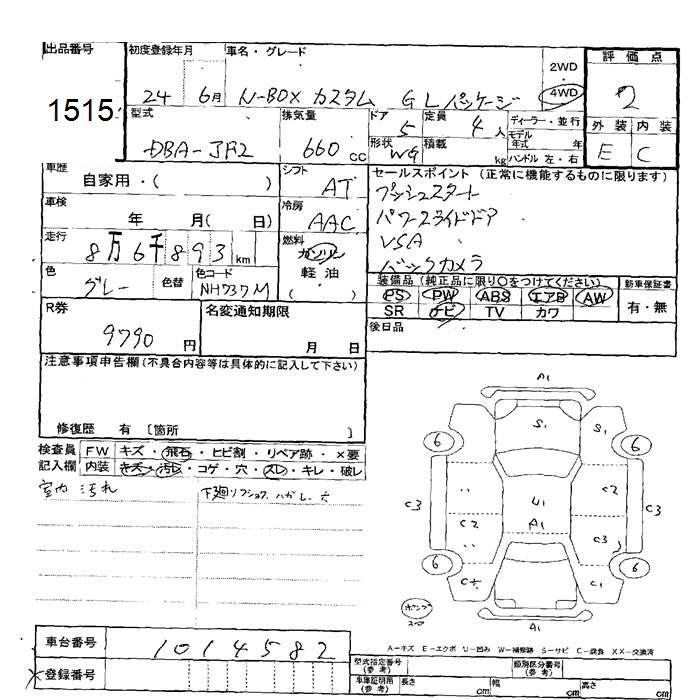 出品番号
1515
初度登録年月
24 6月
車名・グレード
N-BOX カスタム G Lパッケージ
2WD
・
4WD
評価点
2
外装 内装
E C
型式
DBA-JF2
排気量
660 cc
ドア 5
定員 4 人
形状 WG
積載 kg
ディーラー・並行
モデル年式 年
ハンドル 左・右
車歴
自家用・( )
シフト AT
車検
年 月( 日)
冷房 AAC
走行
8万6千893 km
燃料
ガソリン
軽油
( )
色 グレー
色替
色コード NH737M
セールスポイント(正常に機能するものに限ります)
プッシュスタート
パワースライドドア
VSA
バックカメラ
装備品(純正品に限り○をつけてください)
PS PW ABS エアB AW
SR ナビ TV カワ
新車保証書
有・無
後日品
R券
9790 円
名変通知期限
月 日
注意事項申告欄(不具合内容等は具体的に記入して下さい)
修復歴 有〔箇所 〕
検査員
記入欄
FW キズ・飛石・ヒビ割・リペア跡・×要
内装 キズ・汚レ・コゲ・穴・スレ・キレ・破レ
室内 汚れ
A1
S1 S1
6 6
C3 C2 U1 A1 C2 C3 C3
6 6
C1
A1
A-キズ E-エクボ U-凹み W-補修跡 S-サビ C-腐食 XX-交換済
車台番号
1014582
登録番号
型式指定番号
(参考)
類別区分番号
(参考)
車庫証明用
(参考)
長さ cm 幅 cm 高さ cm